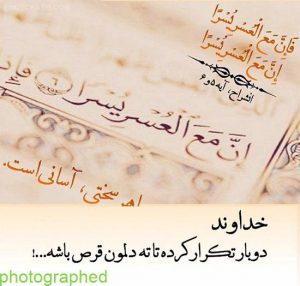 فَاِنَّ مَعَ الْعُسْرِ یُسْرًا
اِنَّ مَعَ الْعُسْرِ یُسْرًا
انشراح، آیه ۵ و ۶
اِنَّ مَعَ الْعُسْرِ یُسْرًا
سختی، آسانی است.
خداوند
دوبار تکرار کرده تا ته دلمون قرص باشه...!
photographed